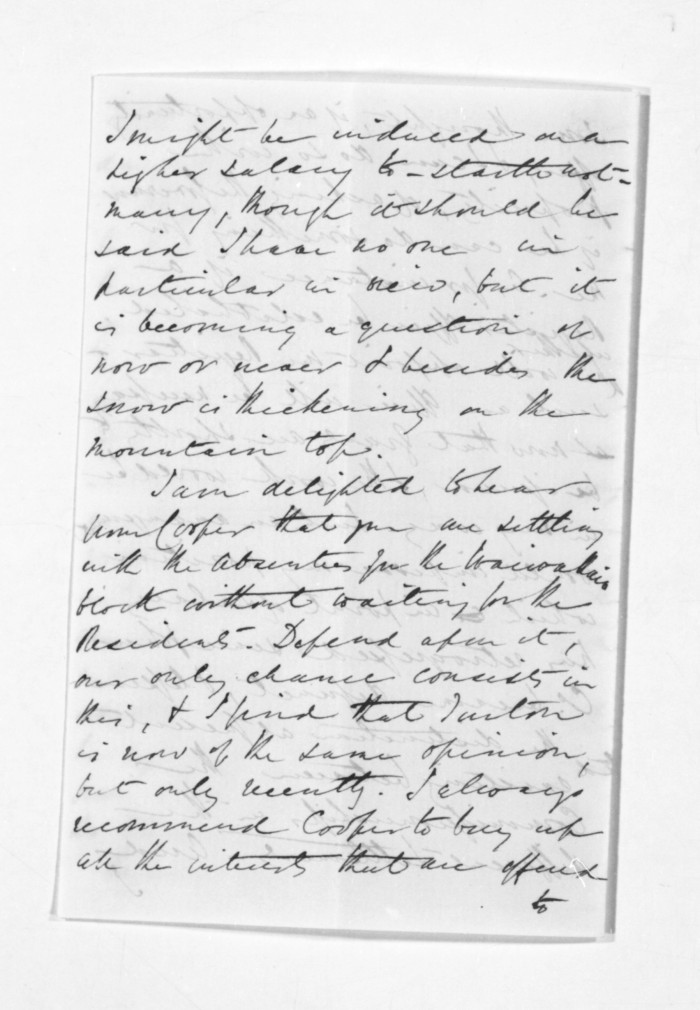 I might be induced on a
higher salary to – startle not –
marry, though it should be
said I have no one in
particular in view, but it
is becoming a question of
now or never & besides the
snow is thickening on the
mountain top.
I am delighted to hear
from Cooper that you are settling
with the Absentees for the
block without waiting for the
Residents. Depend upon it,
our only chance consists in
this, & I find that Turton
is now of the same opinion,
but only recently. I always
recommend Cooper to buy up
all the interests that are offered
to